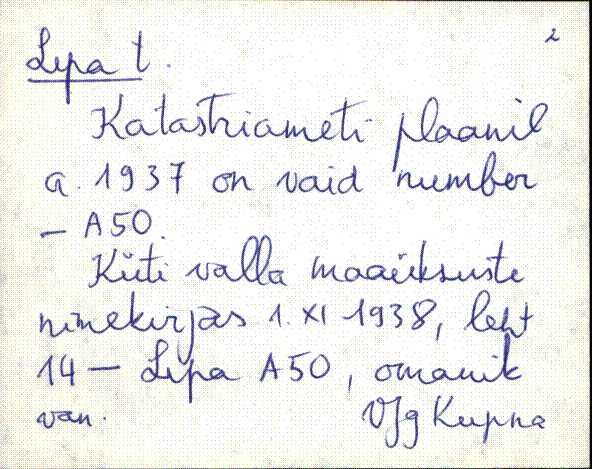 2
Lepa t.
Katastriameti plaanil
a. 1937 on vaid number
- A50.
Küti valla maaüksuste
nimekirjas 1. XI 1938, leht
14 - Lepa A50, omanik
van. Kupna